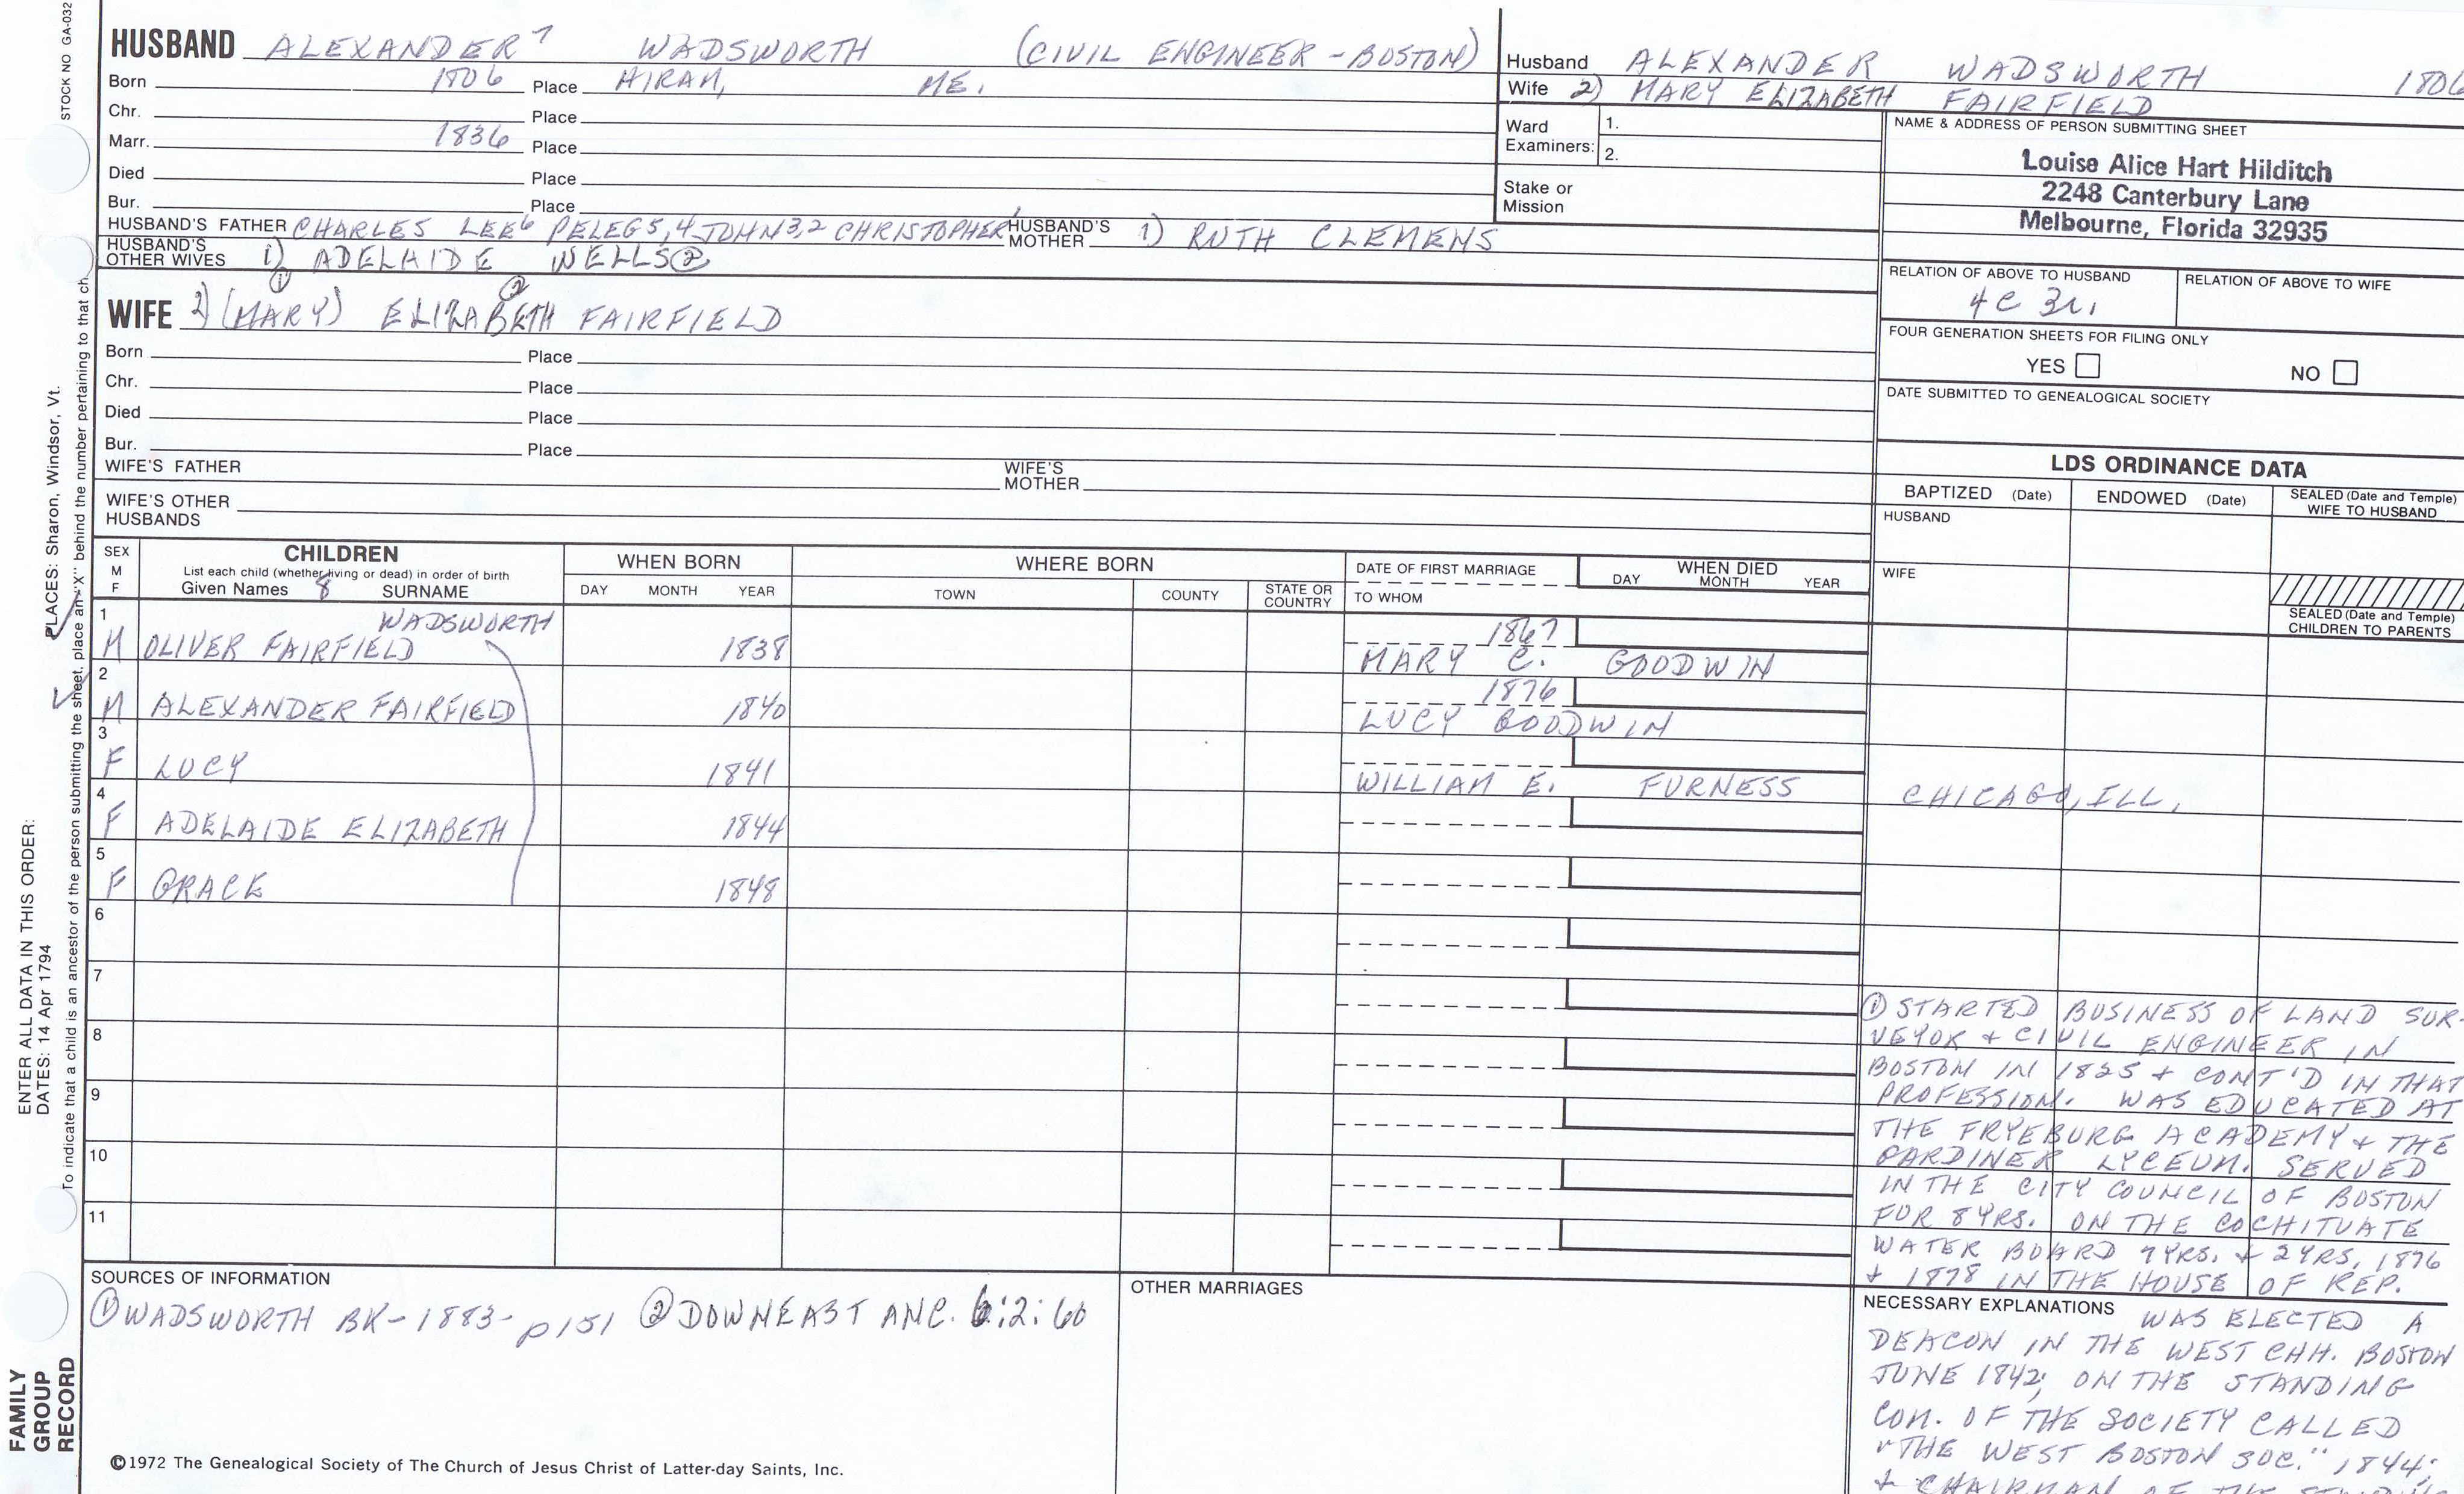 STOCK NO GA-032
HUSBAND ALEXANDER 7 WADSWORTH (CIVIL ENGINEER - BOSTON)
Born 1806 Place HIRAM, ME.
Chr. Place
Marr. 1836 Place
Died Place
Bur. Place
HUSBAND'S FATHER CHARLES LEE 6 PELEG 5,4 JOHN 3,2 CHRISTOPHER 1 HUSBAND'S MOTHER 1) RUTH CLEMENS
HUSBAND'S OTHER WIVES 1) ADELAIDE WELLS ②
① ②
WIFE 2) (MARY) ELIZABETH FAIRFIELD
Born Place
Chr. Place
Died Place
Bur. Place
WIFE'S FATHER WIFE'S MOTHER
WIFE'S OTHER HUSBANDS
Husband ALEXANDER WADSWORTH 1806
Wife 2) MARY ELIZABETH FAIRFIELD
Ward Examiners: 1.
2.
Stake or Mission
NAME & ADDRESS OF PERSON SUBMITTING SHEET
Louise Alice Hart Hilditch
2248 Canterbury Lane
Melbourne, Florida 32935
RELATION OF ABOVE TO HUSBAND RELATION OF ABOVE TO WIFE
4C 3R.
FOUR GENERATION SHEETS FOR FILING ONLY
YES NO
DATE SUBMITTED TO GENEALOGICAL SOCIETY
LDS ORDINANCE DATA
BAPTIZED (Date) ENDOWED (Date) SEALED (Date and Temple) WIFE TO HUSBAND
HUSBAND
WIFE
SEALED (Date and Temple) CHILDREN TO PARENTS
SEX M F
CHILDREN
List each child (whether living or dead) in order of birth
Given Names 8 SURNAME
WHEN BORN
DAY MONTH YEAR
WHERE BORN
TOWN COUNTY STATE OR COUNTRY
DATE OF FIRST MARRIAGE
TO WHOM
WHEN DIED
DAY MONTH YEAR
1 WADSWORTH 1867
M OLIVER FAIRFIELD 1838 MARY C. GOODWIN
2 1876
M ALEXANDER FAIRFIELD 1840 LUCY GOODWIN
3
F LUCY 1841 WILLIAM E. FURNESS CHICAGO, ILL.
4
F ADELAIDE ELIZABETH 1844
5
F GRACE 1848
6
7
8
9
10
11
① STARTED BUSINESS OF LAND SUR-
VEYOR & CIVIL ENGINEER IN
BOSTON IN 1825 & CONT'D IN THAT
PROFESSION. WAS EDUCATED AT
THE FRYEBURG ACADEMY & THE
GARDINER LYCEUM. SERVED
IN THE CITY COUNCIL OF BOSTON
FOR 8 YRS. ON THE COCHITUATE
WATER BOARD 9 YRS. & 2 YRS. 1876
& 1878 IN THE HOUSE OF REP.
SOURCES OF INFORMATION
① WADSWORTH BK - 1883 - p151 ② DOWNEAST ANC. 6:2:60
OTHER MARRIAGES
NECESSARY EXPLANATIONS WAS ELECTED A
DEACON IN THE WEST CHH. BOSTON
JUNE 1842; ON THE STANDING
COM. OF THE SOCIETY CALLED
"THE WEST BOSTON SOC." 1844;
& CHAIRMAN OF THE
©1972 The Genealogical Society of The Church of Jesus Christ of Latter-day Saints, Inc.
ENTER ALL DATA IN THIS ORDER:
DATES: 14 Apr 1794
PLACES: Sharon, Windsor, Vt.
To indicate that a child is an ancestor of the person submitting the sheet, place an "X" behind the number pertaining to that ch
FAMILY
GROUP
RECORD